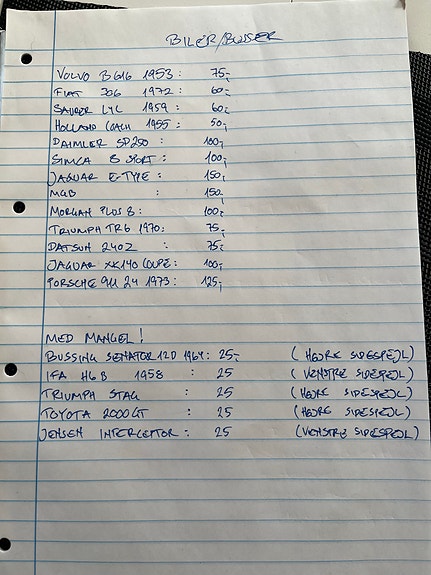 BILER/BUSSER
VOLVO B616 1953 : 75,-
FIAT 306 1972 : 60,-
SAURER LYC 1959 : 60,-
HOLLAND COACH 1955 : 50,-
DAIMLER SP250 : 100,-
SIMCA 8 SPORT : 100,-
JAGUAR E-TYPE : 150,-
MGB : 150,-
MORGAN PLUS 8 : 100,-
TRIUMPH TR6 1970 : 75,-
DATSUN 240Z : 75,-
JAGUAR XK140 COUPE : 100,-
PORSCHE 911 24 1973 : 125,-
MED MANGEL!
BUSSING SENATOR 12D 1964 : 25,- (HØJRE SIDESPEJL)
IFA H6B 1958 : 25 (VENSTRE SIDESPEJL)
TRIUMPH STAG : 25 (HØJRE SIDESPEJL)
TOYOTA 2000GT : 25 (HØJRE SIDESPEJL)
JENSEN INTERCEPTOR : 25 (VENSTRE SIDESPEJL)